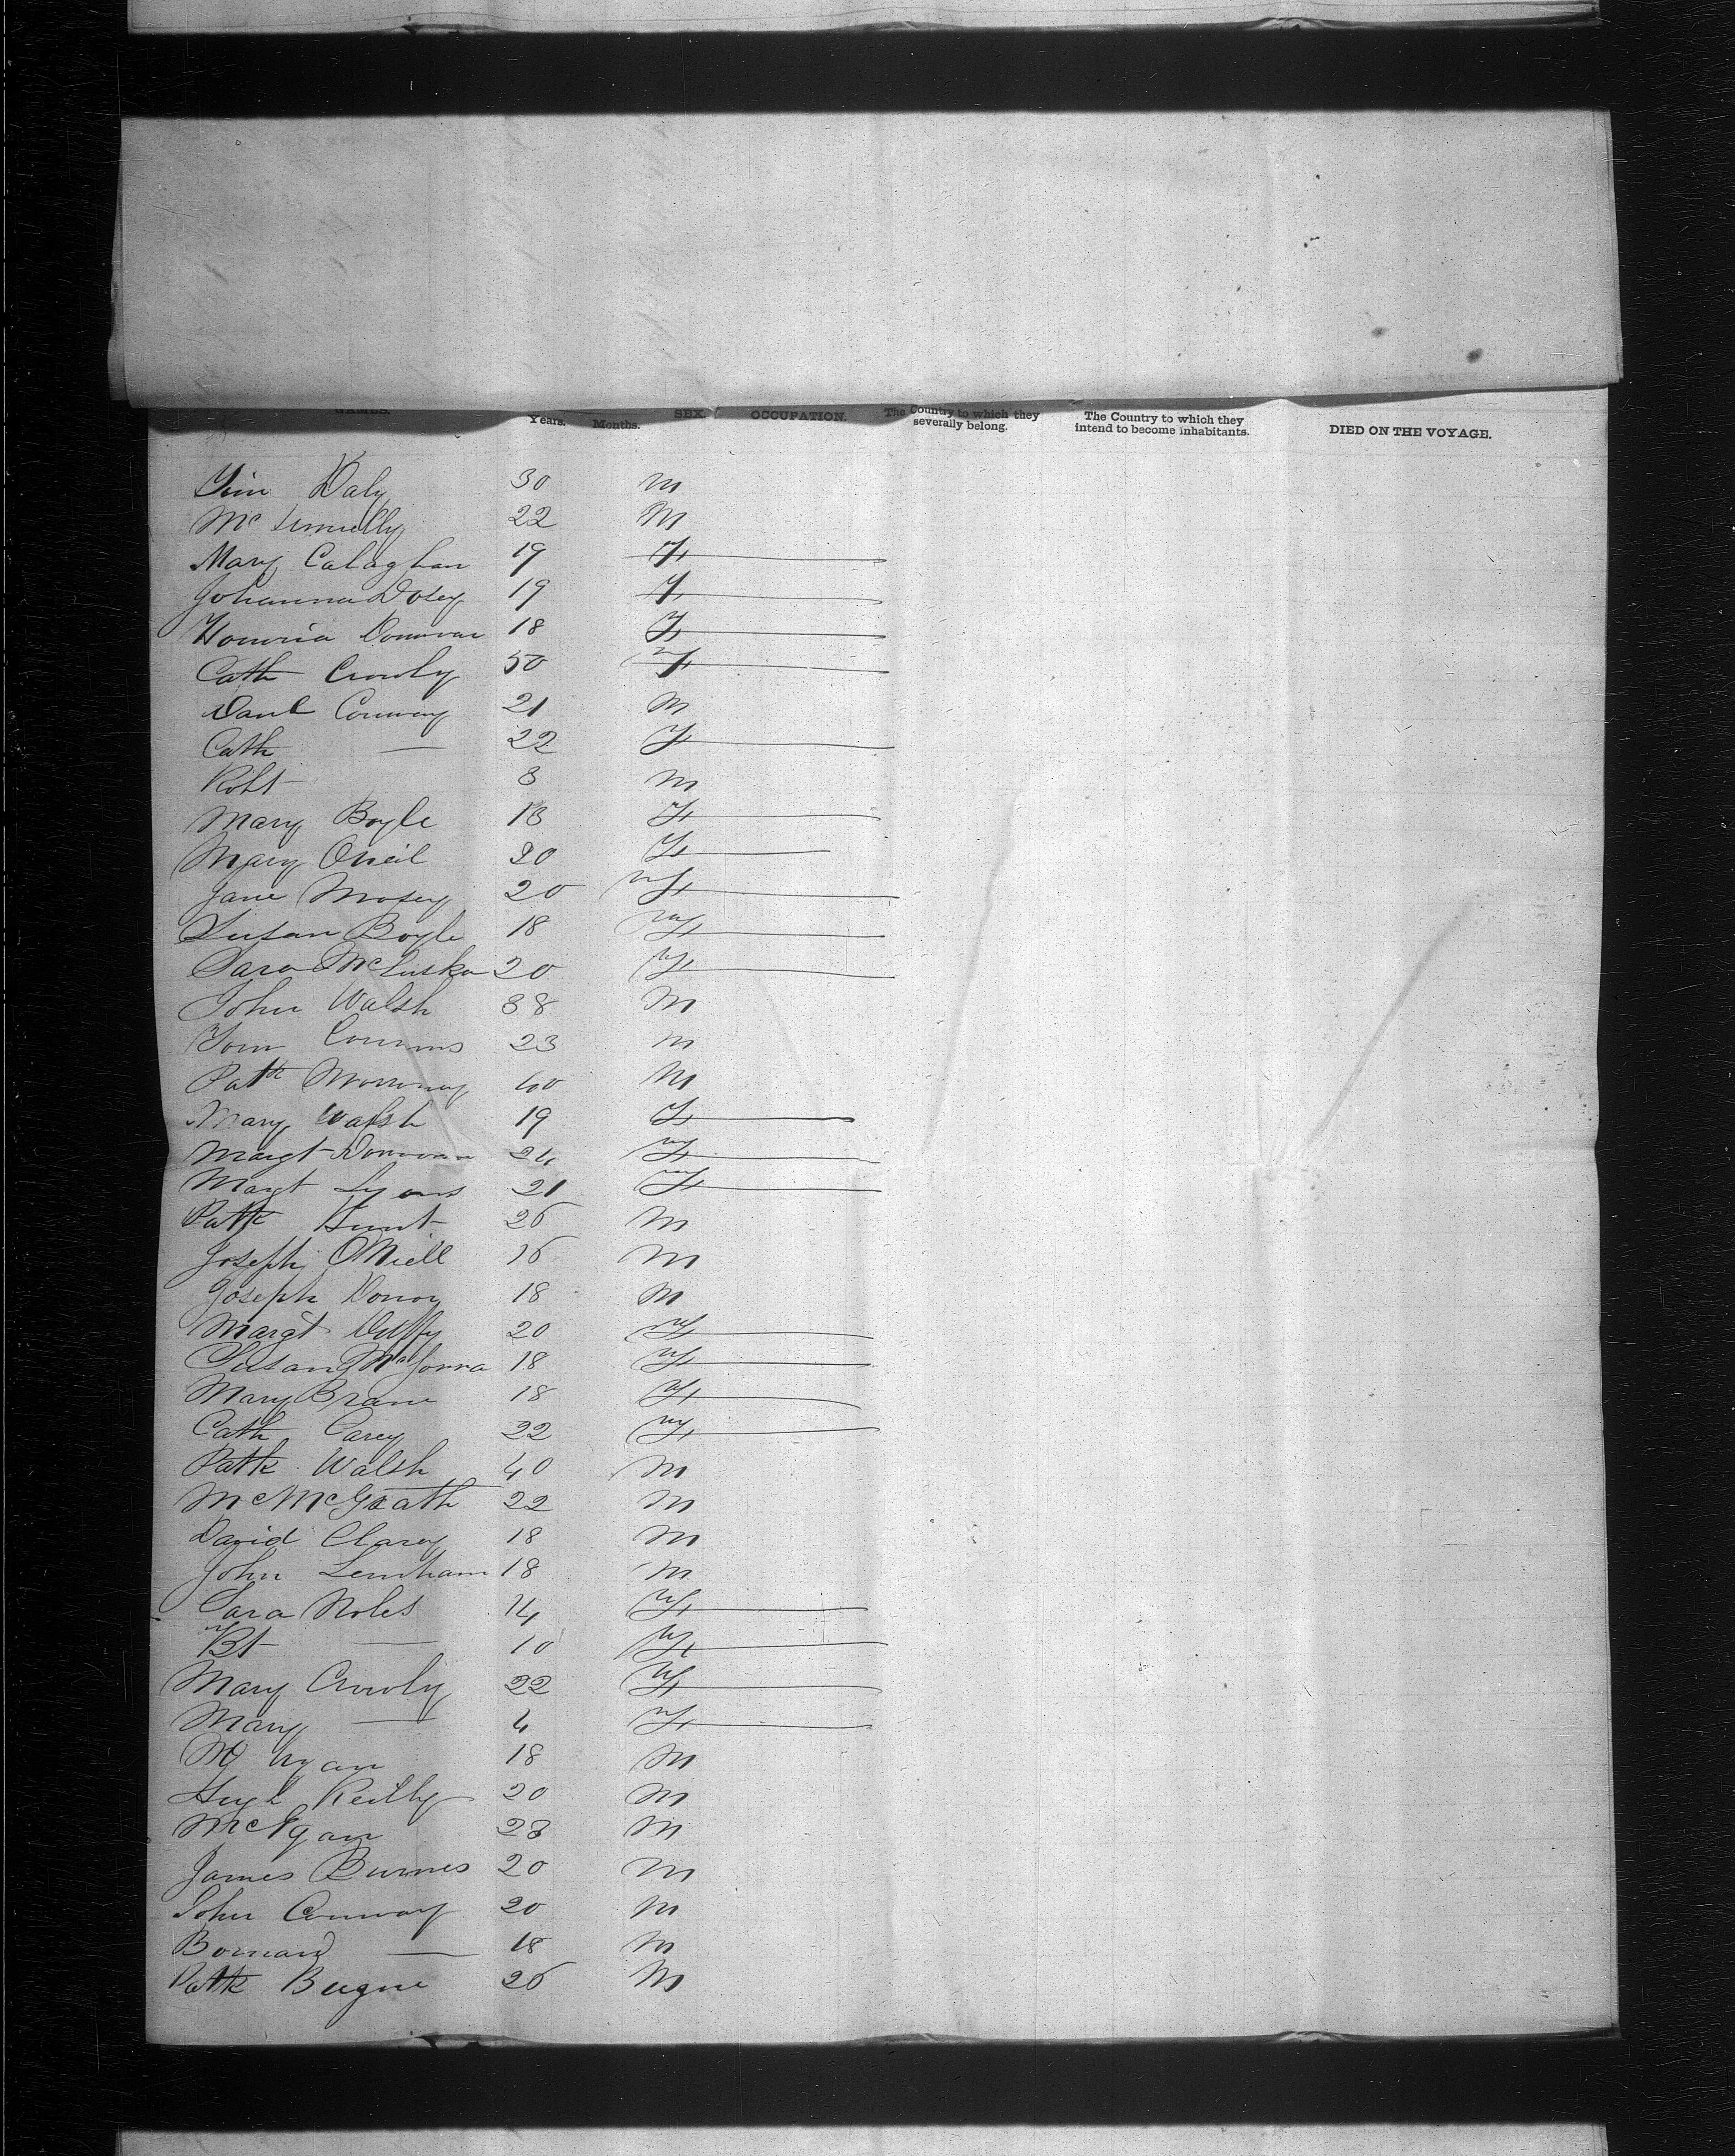 NAMES. Years. Months. SEX. OCCUPATION. The Country to which they severally belong. The Country to which they intend to become inhabitants. DIED ON THE VOYAGE.
Tim Daly 30 M
Mc 22 M
Mary Calaghan 19 F
Johanna Dosey 19 F
Honoria Donovan 18 F
Cath Crowly 50 F
Danl Conway 21 M
Cath — 22 F
Robt 3 M
Mary Boyle 18 F
Mary Oneil 20 F
Jane Mosey 20 F
Susan Boyle 18 F
Sara McLuska 20 F
John Walsh 38 M
Tom 23 M
Patk 40 M
Mary Walsh 19 F
Margt Donovan 24 F
Margt Lyons 21 F
Patk Hunt 25 M
Joseph ONiell 16 M
Joseph 18 M
Margt Duffy 20 F
Susan 18 F
Mary 18 F
Cath Carey 22 F
Patk Walsh 40 M
Mc McGrath 22 M
David Clarey 18 M
John Lencham 18 M
Sara Noles 14 F
Bt — 10 F
Mary Crowly 22 F
Mary — 4 F
18 M
Hugh Reilly 20 M
28 M
James Burnes 20 M
John Conway 20 M
Bornard — 18 M
Patk Bugne 25 M